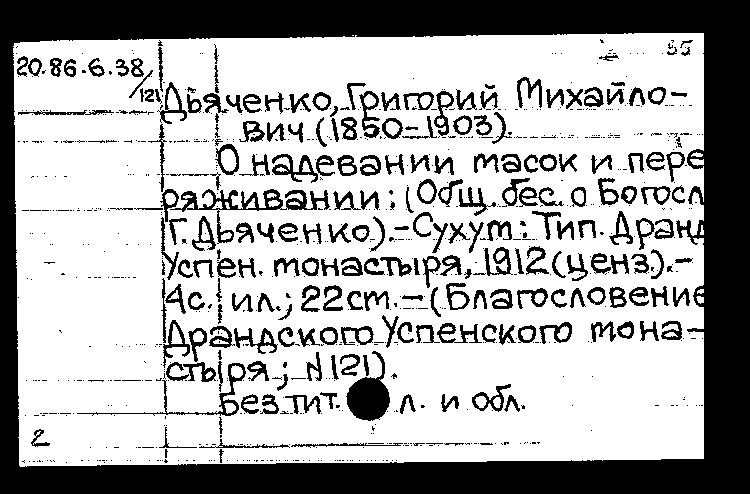 35
20.86.6.38/121
Дьяченко, Григорий Михайло-
вич (1850-1903).
О надевании масок и пере
ряживании: (Общ. бес. о Богосл
Г. Дьяченко).-Сухум: Тип. Дранд
Успен. монастыря, 1912(ценз.).-
4с.: ил.; 22см.-(Благословение
Драндского Успенского мона-
стыря; N121).
Без тит. л. и обл.
2